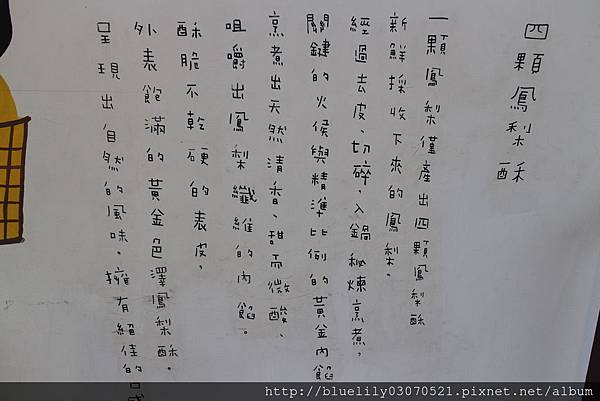 四顆鳳梨酥
一顆鳳梨僅產出四顆鳳梨酥
新鮮採收下來的鳳梨。
經過去皮、切碎,入鍋秘煉烹煮,
關鍵的火侯與精準比例的黃金內餡
烹煮出天然清香、甜而微酸、
咀嚼出鳳梨纖維的內餡。
酥脆不乾硬的表皮,
外表飽滿的黃金色澤鳳梨酥。
呈現出自然的風味。擁有絕佳的口感
http://bluelily03070521.pixnet.net/album